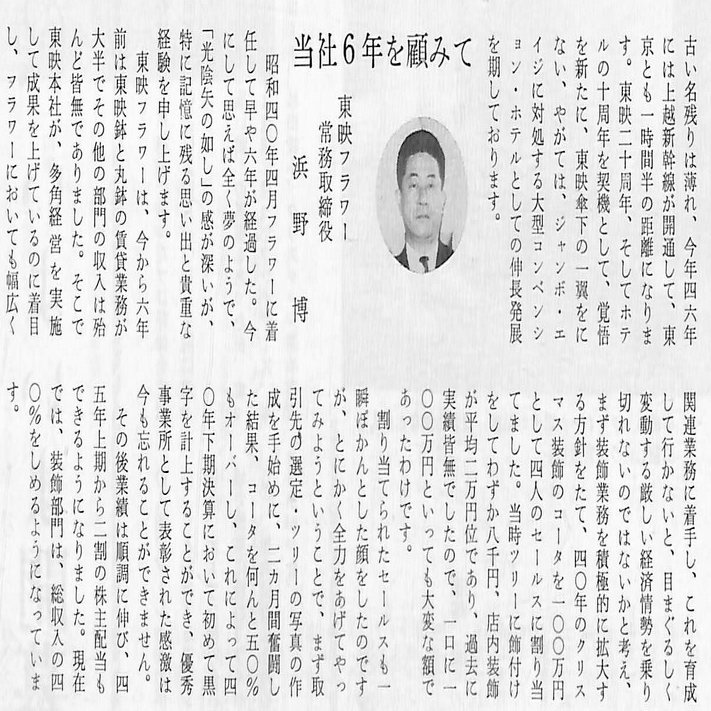 古い名残りは薄れ、今年四六年
には上越新幹線が開通して、東
京とも一時間半の距離になりま
す。東映二十周年、そしてホテ
ルの十周年を契機として、覚悟
を新たに、東映傘下の一翼をに
ない、やがては、ジャンボ・エ
イジに対処する大型コンベンシ
ョン・ホテルとしての伸長発展
を期しております。
当社6年を顧みて
東映フラワー
常務取締役
浜野 博
昭和四〇年四月フラワーに着
任して早や六年が経過した。今
にして思えば全く夢のようで、
「光陰矢の如し」の感が深いが、
特に記憶に残る思い出と貴重な
経験を申し上げます。
東映フラワーは、今から六年
前は東映鉢と丸鉢の賃貸業務が
大半でその他の部門の収入は殆
んど皆無でありました。そこで
東映本社が、多角経営を実施
して成果を上げているのに着目
し、フラワーにおいても幅広く
関連業務に着手し、これを育成
して行かないと、目まぐるしく
変動する厳しい経済情勢を乗り
切れないのではないかと考え、
まず装飾業務を積極的に拡大す
る方針をたて、四〇年のクリス
マス装飾のコータを一〇〇万円
として四人のセールスに割り当
てました。当時ツリーに飾付け
をしてわずか八千円、店内装飾
が平均二万円位であり、過去に
実績皆無でしたので、一口に一
〇〇万円といっても大変な額で
あったわけです。
割り当てられたセールスも一
瞬ぽかんとした顔をしたのです
が、とにかく全力をあげてやっ
てみようということで、まず取
引先の選定・ツリーの写真の作
成を手始めに、二カ月間奮闘し
た結果、コータを何んと五〇%
もオーバーし、これによって四
〇年下期決算において初めて黒
字を計上することができ、優秀
事業所として表彰された感激は
今も忘れることができません。
その後業績は順調に伸び、四
五年上期から二割の株主配当も
できるようになりました。現在
では、装飾部門は、総収入の四
〇%をしめるようになっていま
す。